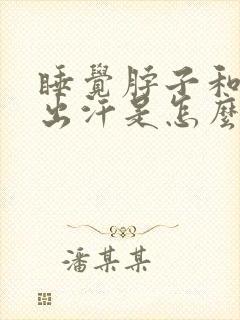 睡覺脖子和
出汗是怎麼
潘某某